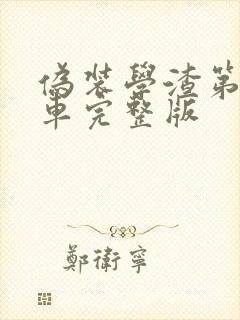 偽裝學渣第
車完整版
鄭衛寧